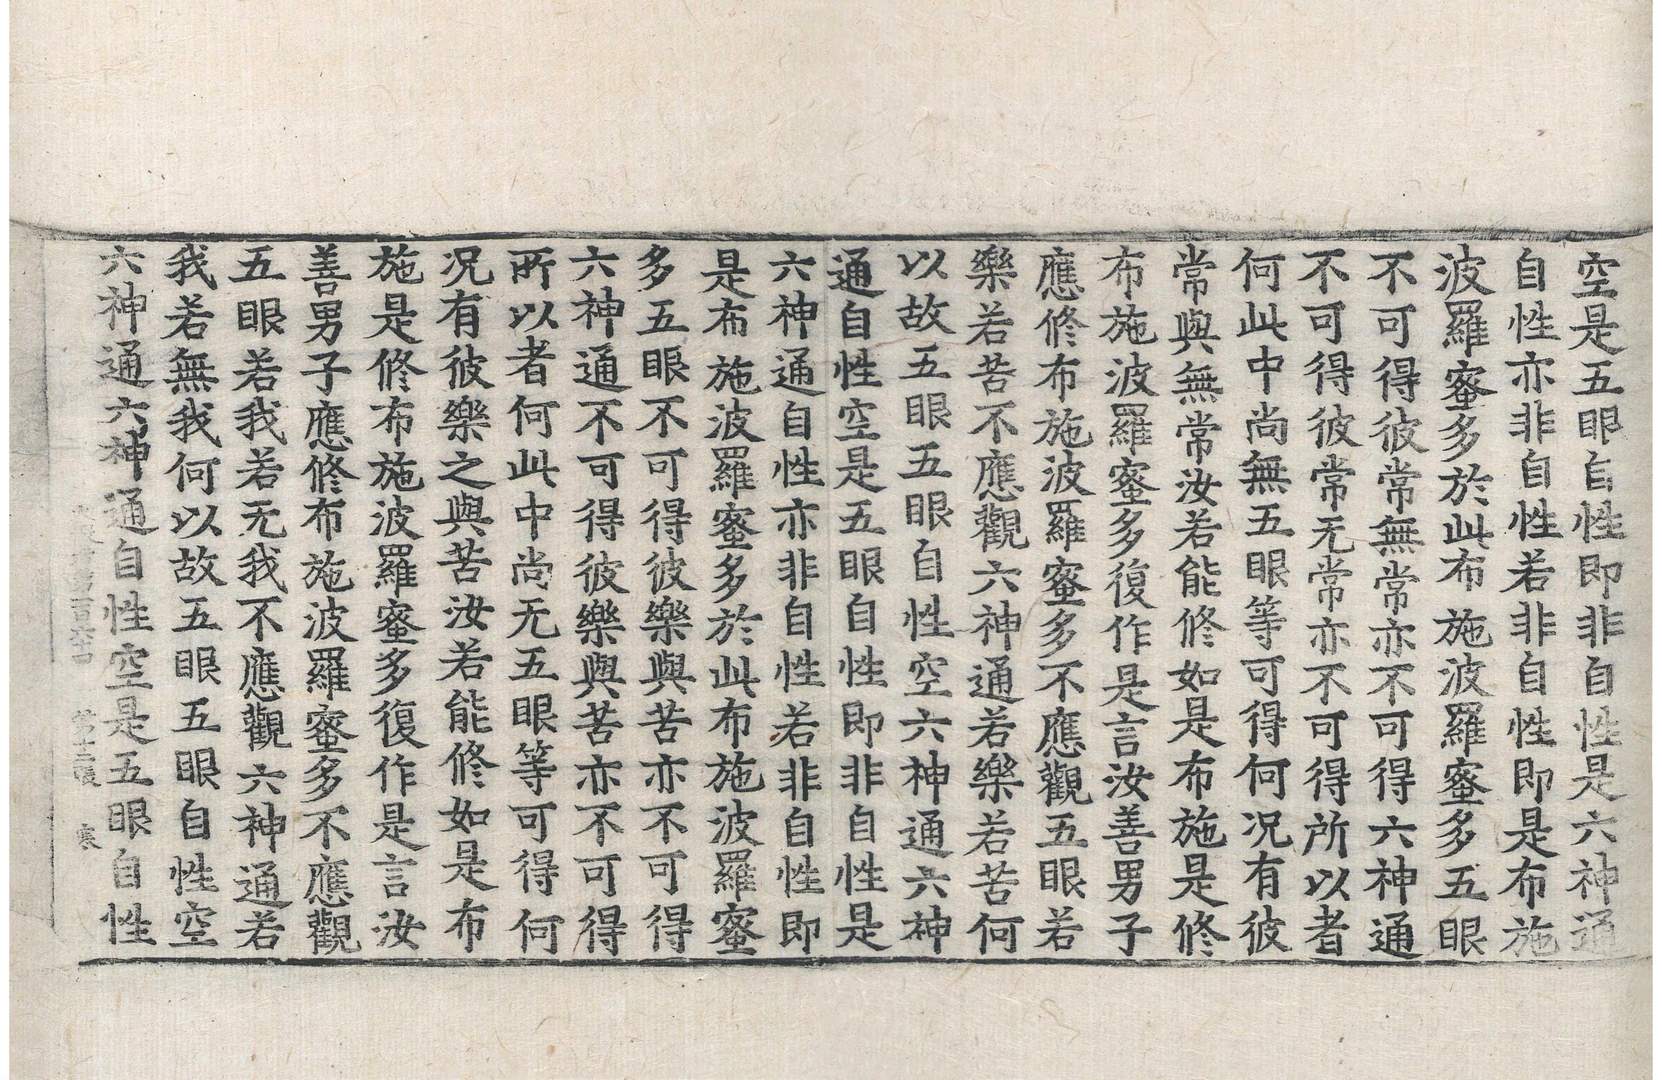 空是五眼自性即非自性是六神通
自性亦非自性若非自性即是布施
波羅蜜多於此布施波羅蜜多五眼
不可得彼常無常亦不可得六神通
不可得彼常无常亦不可得所以者
何此中尚無五眼等可得何况有彼
常與無常汝若能修如是布施是修
布施波羅蜜多復作是言汝善男子
應修布施波羅蜜多不應觀五眼若
樂若苦不應觀六神通若樂若苦何
以故五眼五眼自性空六神通六神
通自性空是五眼自性即非自性是
六神通自性亦非自性若非自性即
是布施波羅蜜多於此布施波羅蜜
多五眼不可得彼樂與苦亦不可得
六神通不可得彼樂與苦亦不可得
所以者何此中尚无五眼等可得何
况有彼樂之與苦汝若能修如是布
施是修布施波羅蜜多復作是言汝
善男子應修布施波羅蜜多不應觀
五眼若我若无我不應觀六神通若
我若無我何以故五眼五眼自性空
六神通六神通自性空是五眼自性
寒